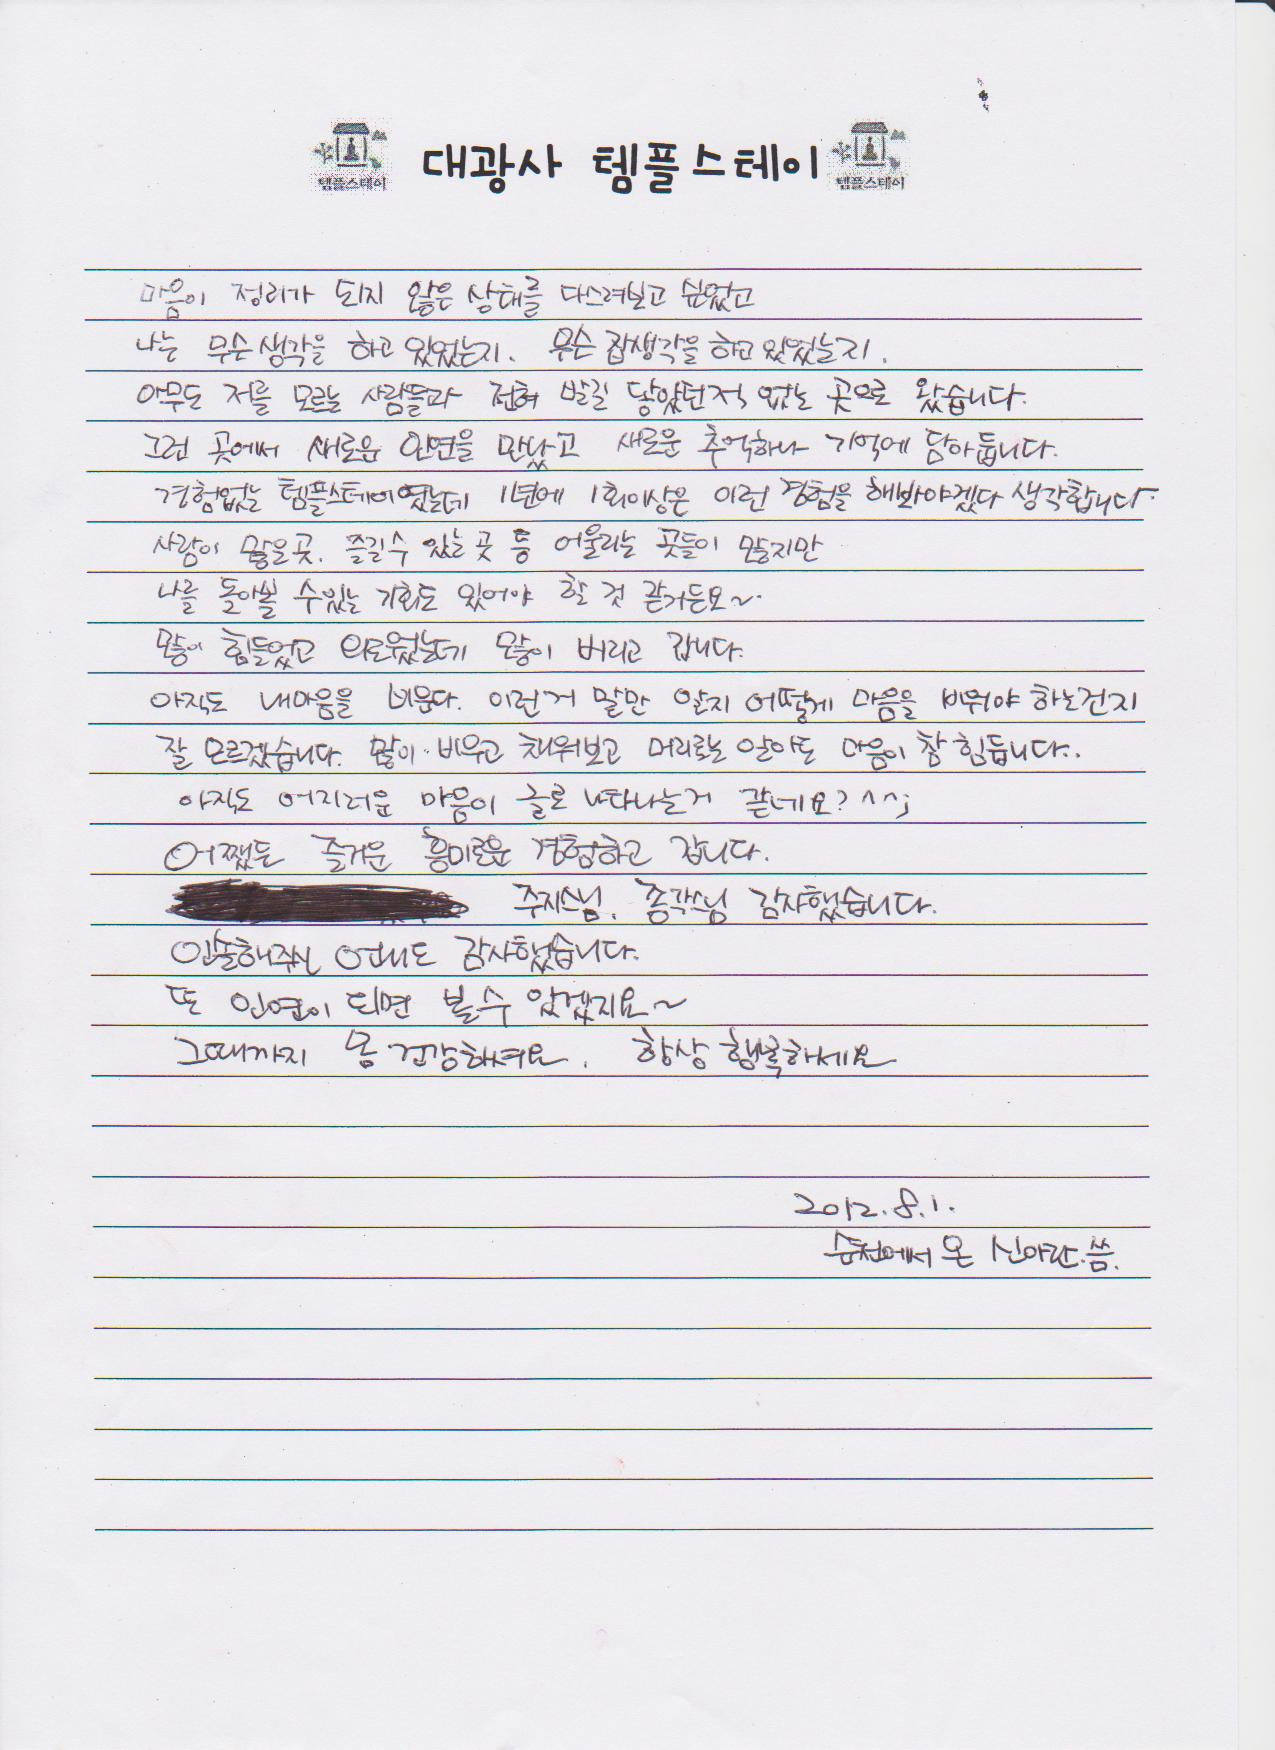 템플스테이 대광사 템플스테이 템플스테이
마음이 정리가 되지 않은 상태를 다스려보고 싶었고
나는 무슨생각을 하고 있었는지. 무슨 잡생각을 하고 있었는지.
아무도 저를 모르는 사람들과 전혀 발길 닿았던적 없는 곳으로 왔습니다.
그런 곳에서 새로운 인연을 만났고 새로운 추억하나 기억에 담아둡니다.
경험없는 템플스테이였는데 1년에 1회이상은 이런 경험을 해봐야겠다 생각합니다.
사람이 많은곳. 즐길수 있는 곳 등 어울리는 곳들이 많지만
나를 돌아볼 수있는 기회도 있어야 할 것 같거든요~.
많이 힘들었고 외로웠는데 많이 버리고 갑니다.
아직도 내마음을 비운다. 이런거 말만 알지 어떻게 마음을 비워야 하는건지
잘 모르겠습니다. 많이 비우고 채워보고 머리로는 알아도 마음이 참 힘듭니다..
아직도 어지러운 마음이 글로 나타나는거 같네요? ^^;
어쨌든 즐거운 흥미로운 경험하고 갑니다.
주지스님, 종각스님 감사했습니다.
인솔해주신 언니도 감사했습니다.
또 인연이 되면 볼수 있겠지요~
그때까지 몸 건강하셔요. 항상 행복하세요
2012.8.1.
순천에서 온 신아란.씀.